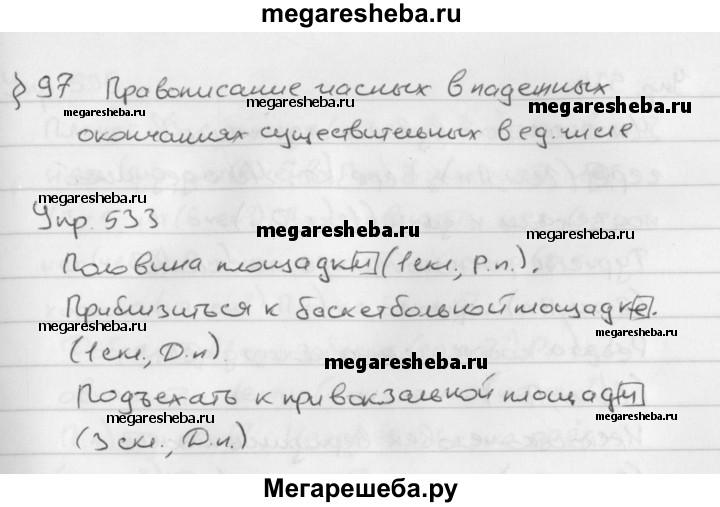 megaresheba.ru
§ 97 Правописание гласных в падежных
megaresheba.ru megaresheba.ru megaresheba.ru
окончаниях существительных в ед. числе
megaresheba.ru megaresheba.ru
Упр. 533
megaresheba.ru megaresheba.ru
Половина площадки (1 скл., Р.п.).
megaresheba.ru
Приблизиться к баскетбольной площадке.
megaresheba.ru megaresheba.ru
(1 скл., Д.п).
megaresheba.ru
Подъехать к привокзальной площади
megaresheba.ru megaresheba.ru
(3 скл., Д.п.)
Мегарешеба.ру